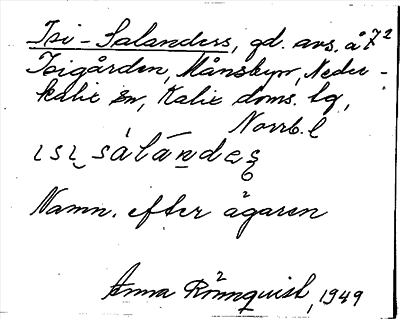 Isi-Salanders, gd. avs. å 7²
Isigården, Månsbyn, Neder-
kalix sn, Kalix doms. lg,
Norrb. l
ɩsɩ sálàndeʂ
Namn. efter ägaren
Anna Rönnquist, 1949